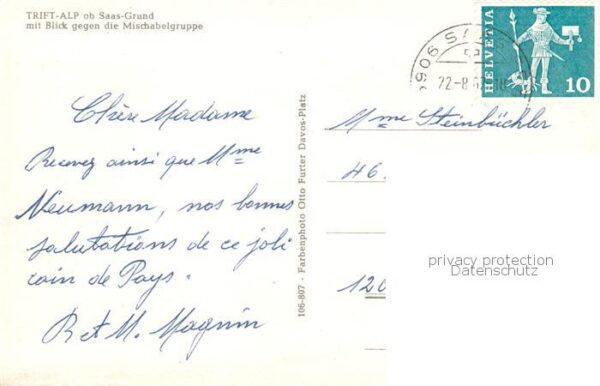 TRIFT-ALP ob Saas-Grund
mit Blick gegen die Mischabelgruppe
Chère Madame
Recevez ainsi que Mme
Neumann, nos bonnes
salutations de ce joli
coin de Pays.
R et M. Magnin
106-807 - Farbenphoto Otto Furter Davos-Platz
HELVETIA
10
3906 SA
22-8
Mme Steinbüchler
46.
120
privacy protection
Datenschutz